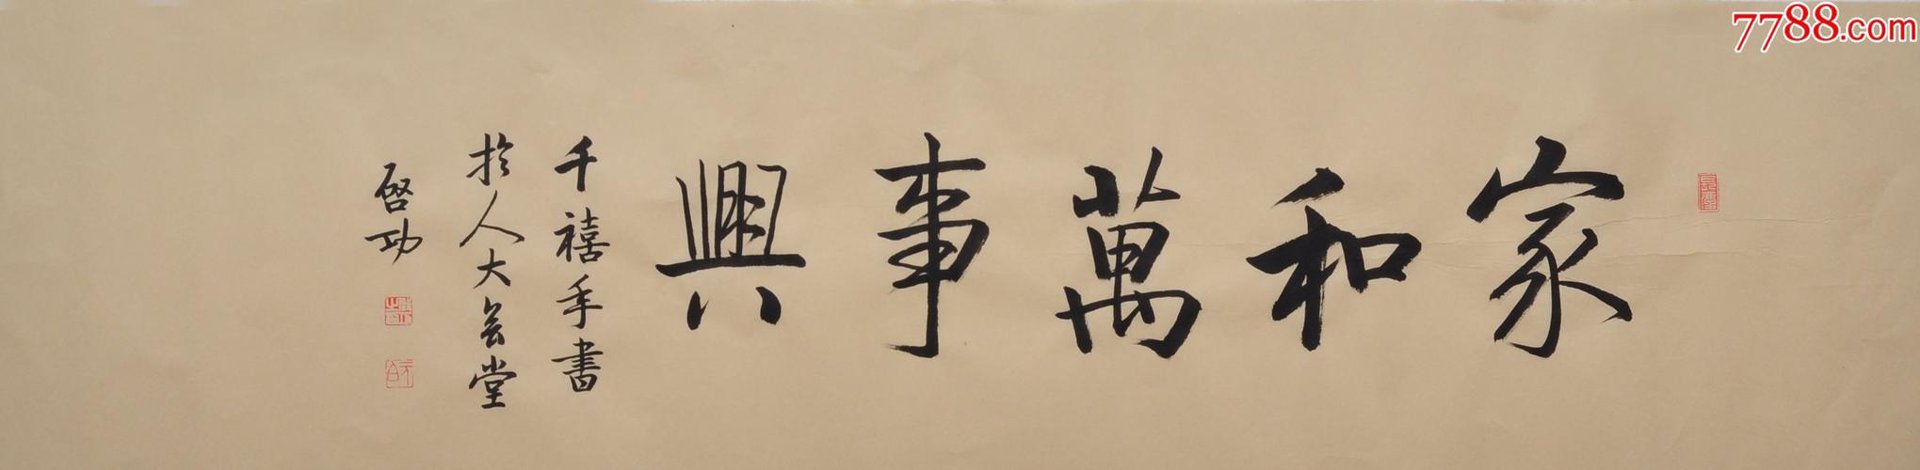 7788.com
家和萬事興
千禧年書
於人大会堂
啓功